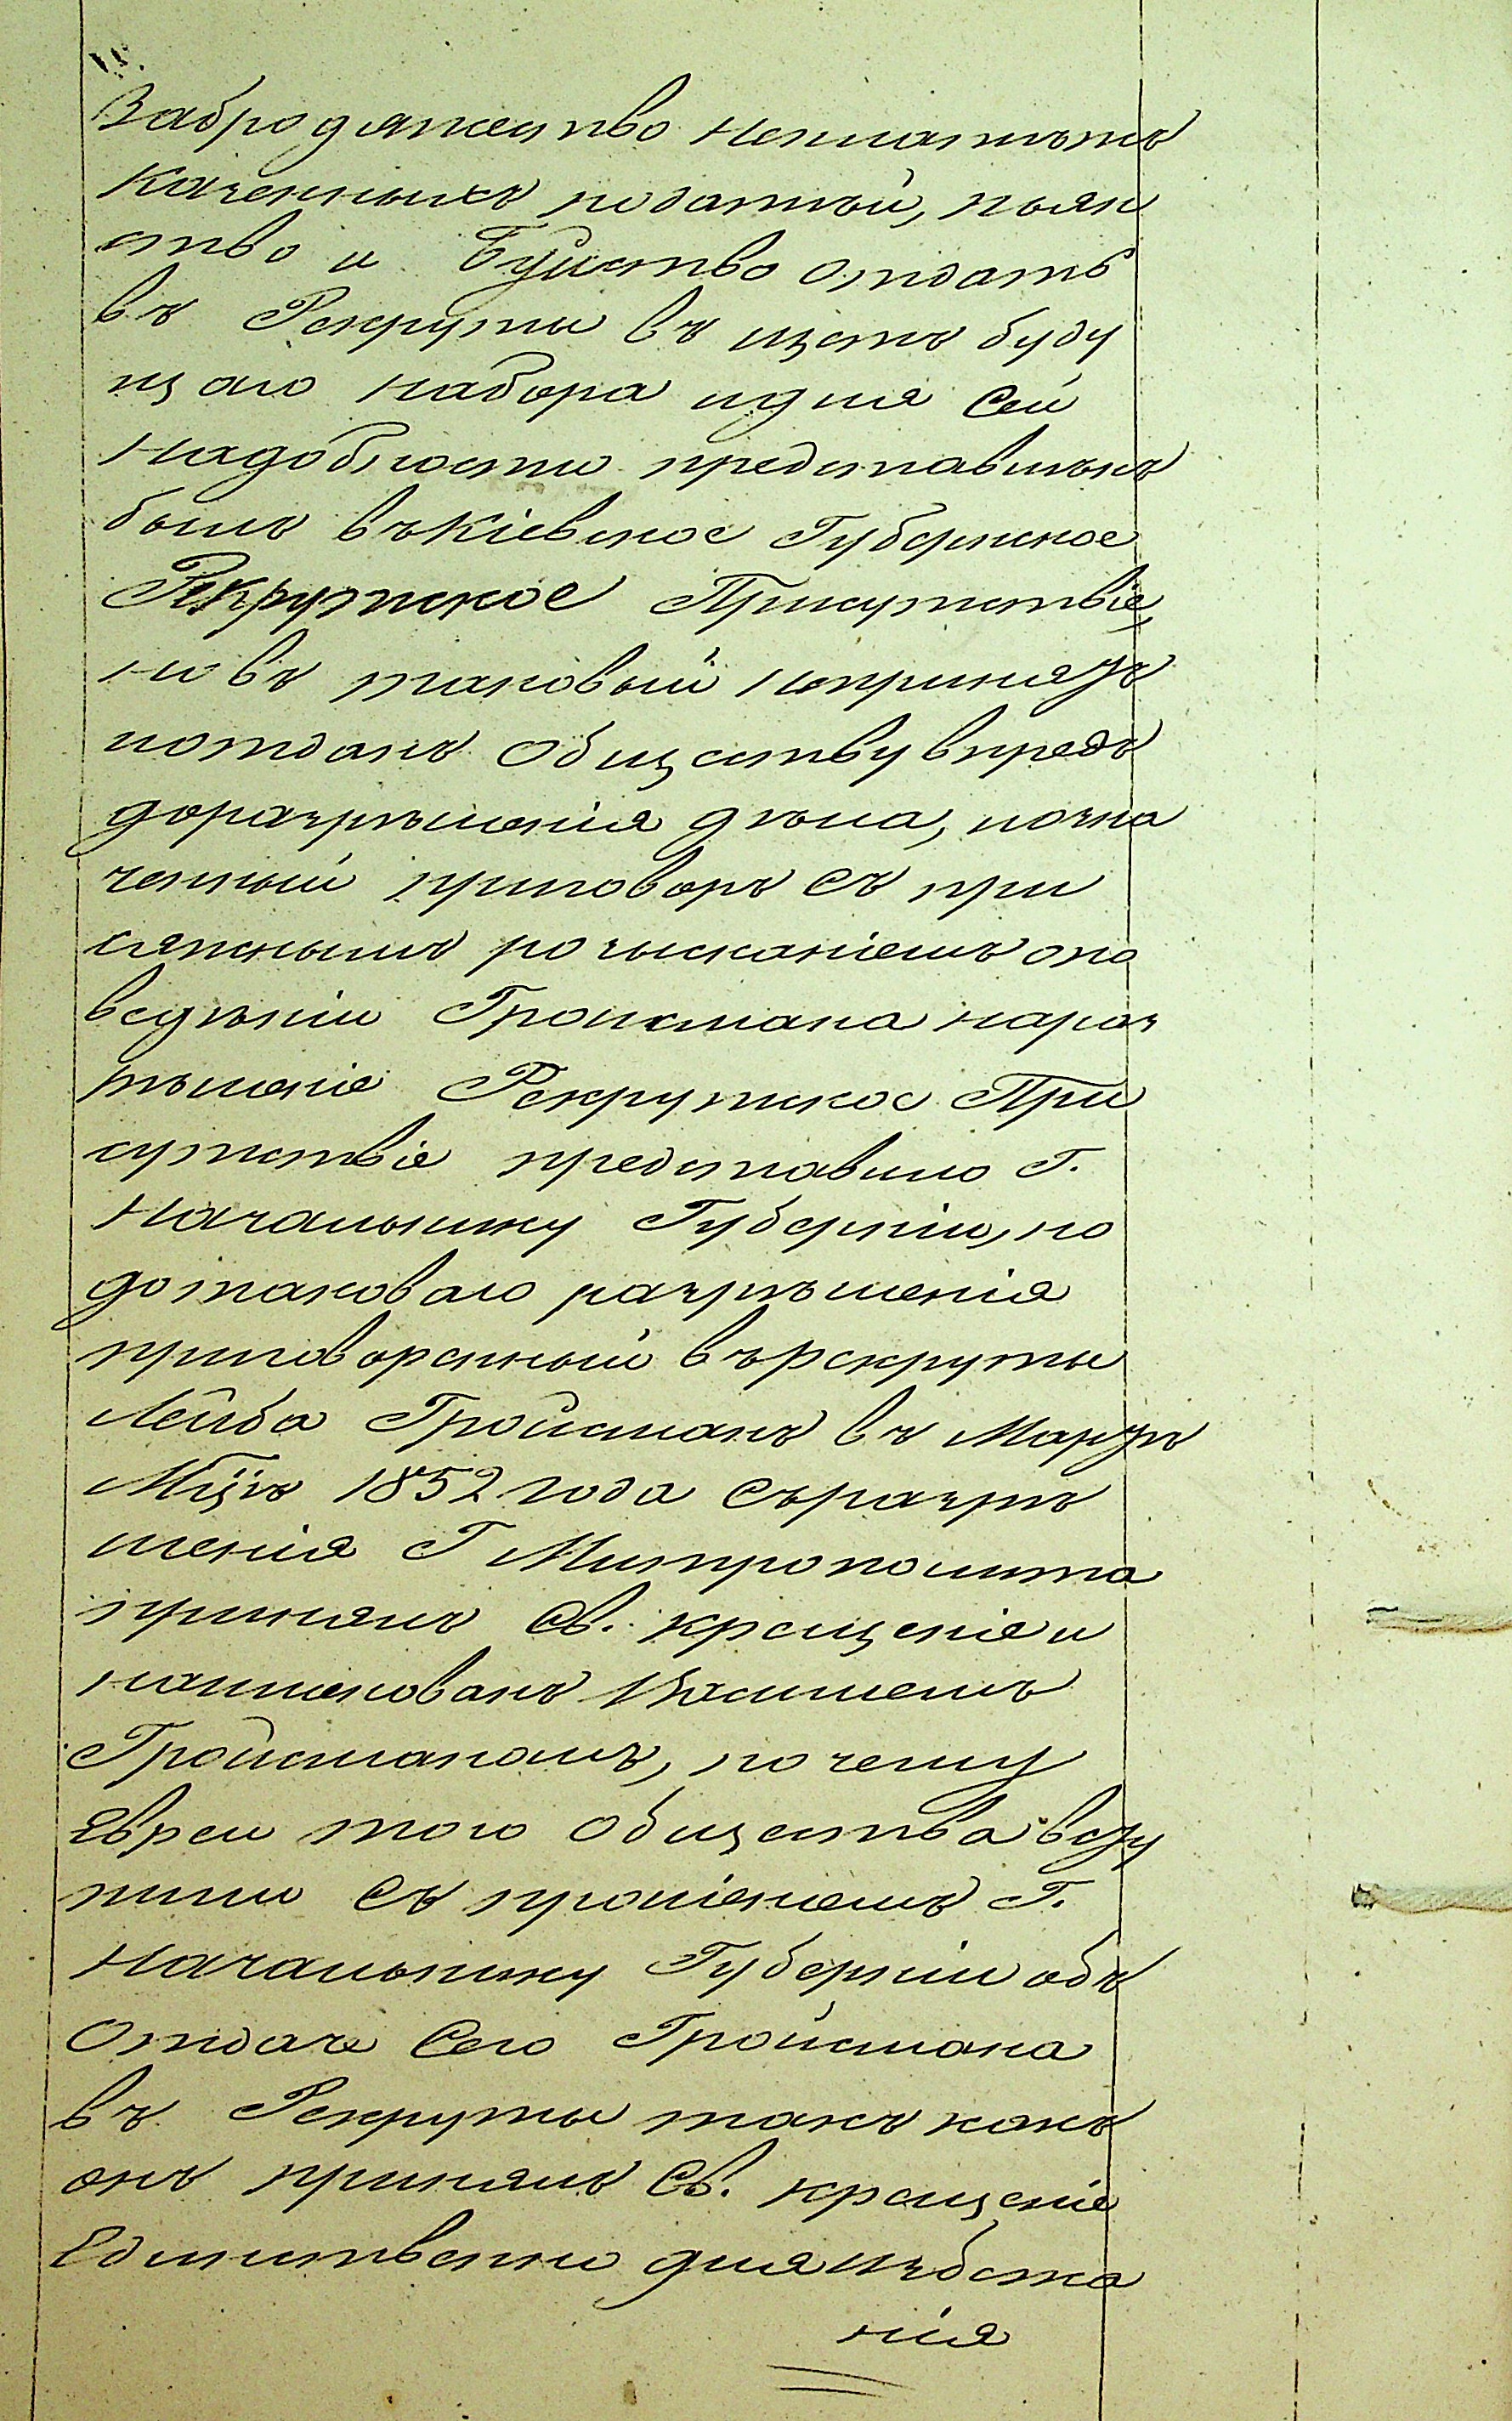 Забродяжество неплатежъ
Казенныхъ податей, пьян
ство и Буйство отдать
въ Рекруты въ щетъ буду
щаго набора идля Сей
Надобности представленъ
былъ въКіевское Губернское
Рекрутское Присутствіе,
но въ таковый непринятъ
иотданъ Обществу впредь
доразрѣшенія дѣла, иозна
ченный приговоръ Съ при
сяжнымъ розысканіемъ опо
веденіи Гройсмана нараз
рѣшеніе Рекрутское При
сутствіе представило Г.
Начальнику Губерніи, но
дотаковаго разрѣшенія
приговоренный върекруты
Лейба Гройсманъ въ Мартѣ
Мцѣ 1852 года Съразрѣ
шенія Г Митрополита
принялъ Св. крещеніе и
наименованъ Василіемъ
Гройсманомъ, по чему
Евреи того Общества всту
пили Съ прошеніемъ Г.
Начальнику Губерніи объ
Отдаче Сего Гройсмана
въ Рекруты такъ какъ
онъ принялъ Св. крещеніе
Единственно для избежа
нія